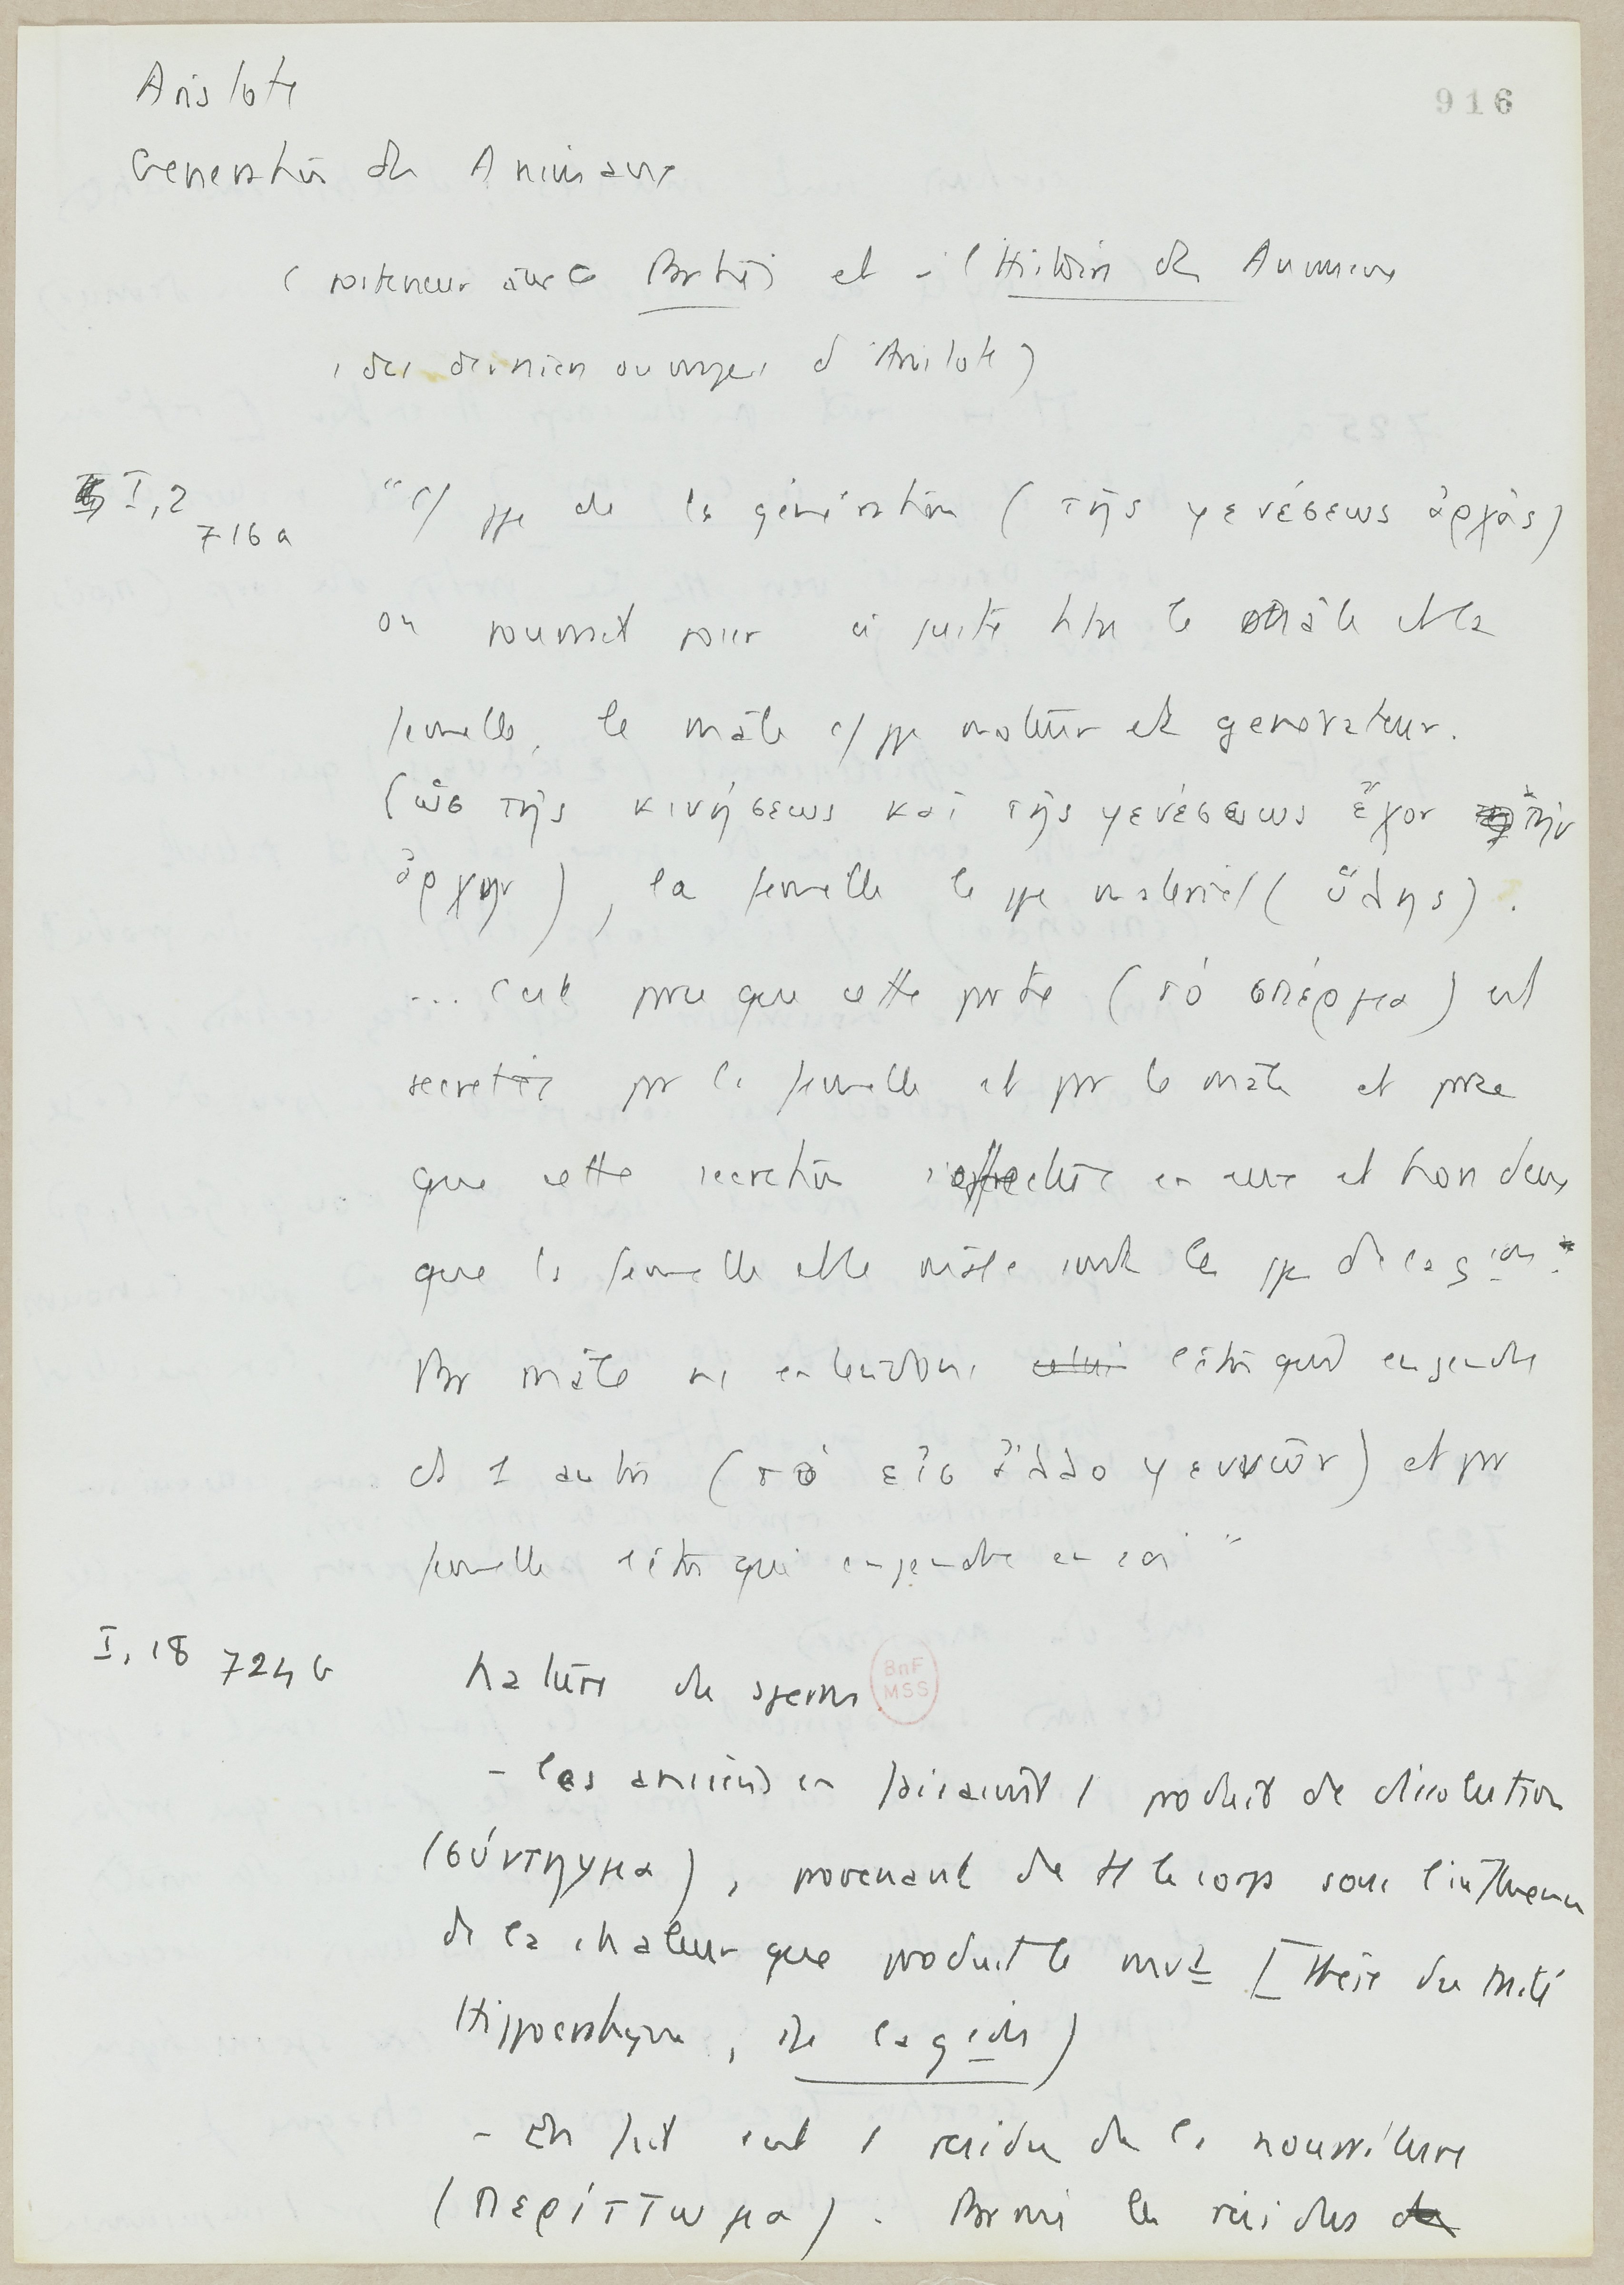 Aristote
916
Generation des Animaux
(posterieur aux Parties et à l'Histoire des Animaux
, des derniers ouvrages d'Aristote)
I, 2
716 a
"c/ ppe de la génération (τῆς γενέσεως ἀρχὰς)
on pourrait poser à juste titre le mâle et la
femelle, le mâle c/ ppe moteur et generateur.
(ὡς τῆς κινήσεως καὶ τῆς γενέσεως ἔχον τὴν
ἀρχην), la femelle le ppe materiel (ὕλης).
... C'est parce que cette partie (τὸ σπέρμα) est
secretée par la femelle et par le mâle et parce
que cette secretion s'effectue en eux et hors deux
que la femelle et le mâle sont les ppe de la gion.
Par mâle ns entendons celui l'être qui engendre
ds 1 autre (τὸ εἰς ἄλλο γεννῶν) et par
femelle l'être qui engendre en soi"
I, 18 724 b
Nature du sperme
BnF
MSS
- les anciens en faisaient 1 produit de dissolution
(σύντηγμα), provenant de tt le corps sous l'influence
de la chaleur que produit le mvt [thèse du traité
Hippocratique, de la gion)
- En fait c'est 1 residu de la nourriture
(περίττωμα). Parmi les résidus de